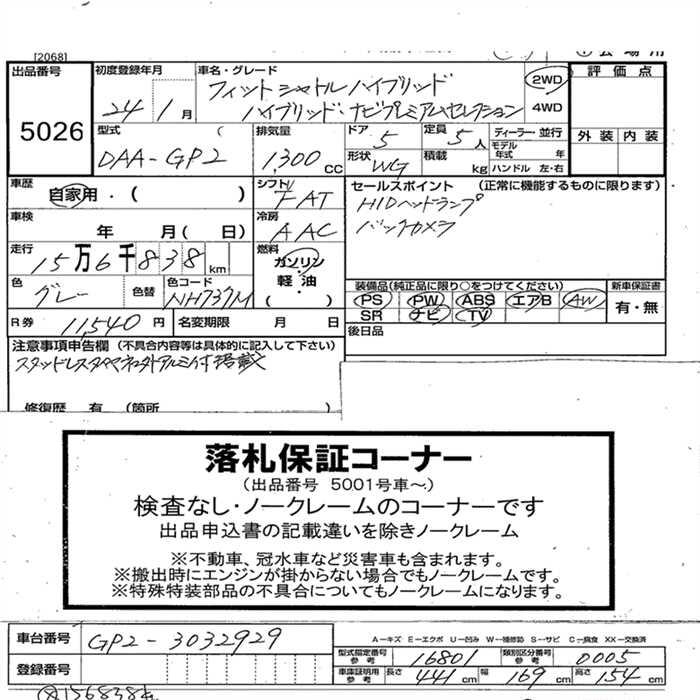 [2068]
出品番号 5026
初度登録年月 24 1 月
車名・グレード フィットシャトルハイブリッド
ハイブリッド・ナビプレミアムセレクション
2WD
4WD
評価点
外装 内装
型式 DAA-GP2
排気量 1,300 cc
ドア 5
定員 5 人
形状 WG
積載 kg
ディーラー・並行
モデル年式 年
ハンドル 左・右
車歴 自家用・( )
シフト FAT
セールスポイント (正常に機能するものに限ります)
HIDヘッドランプ
バックカメラ
車検 年 月( 日)
冷房 AAC
走行 15万6千838 km
燃料 ガソリン・軽油・( )
色 グレー
色替
色コード NH737M
装備品(純正品に限り○をつけてください)
PS PW ABS エアB AW
SR ナビ TV
新車保証書
有・無
R券 11,540 円
名変期限 月 日
後日品
注意事項申告欄(不具合内容等は具体的に記入して下さい)
スタッドレスタイヤ
搭載
修復歴 有 (箇所 )
落札保証コーナー
(出品番号 5001号車〜)
検査なし・ノークレームのコーナーです
出品申込書の記載違いを除きノークレーム
※不動車、冠水車など災害車も含まれます。
※搬出時にエンジンが掛からない場合でもノークレームです。
※特殊特装部品の不具合についてもノークレームになります。
車台番号 GP2-3032929
A－キズ E－エクボ U－凹み W－補修跡 S－サビ C－腐食 XX－交換済
登録番号
型式指定番号参考 16801
類別区分番号参考 0005
車庫証明用参考 長さ 441 cm 幅 169 cm 高さ 154 cm